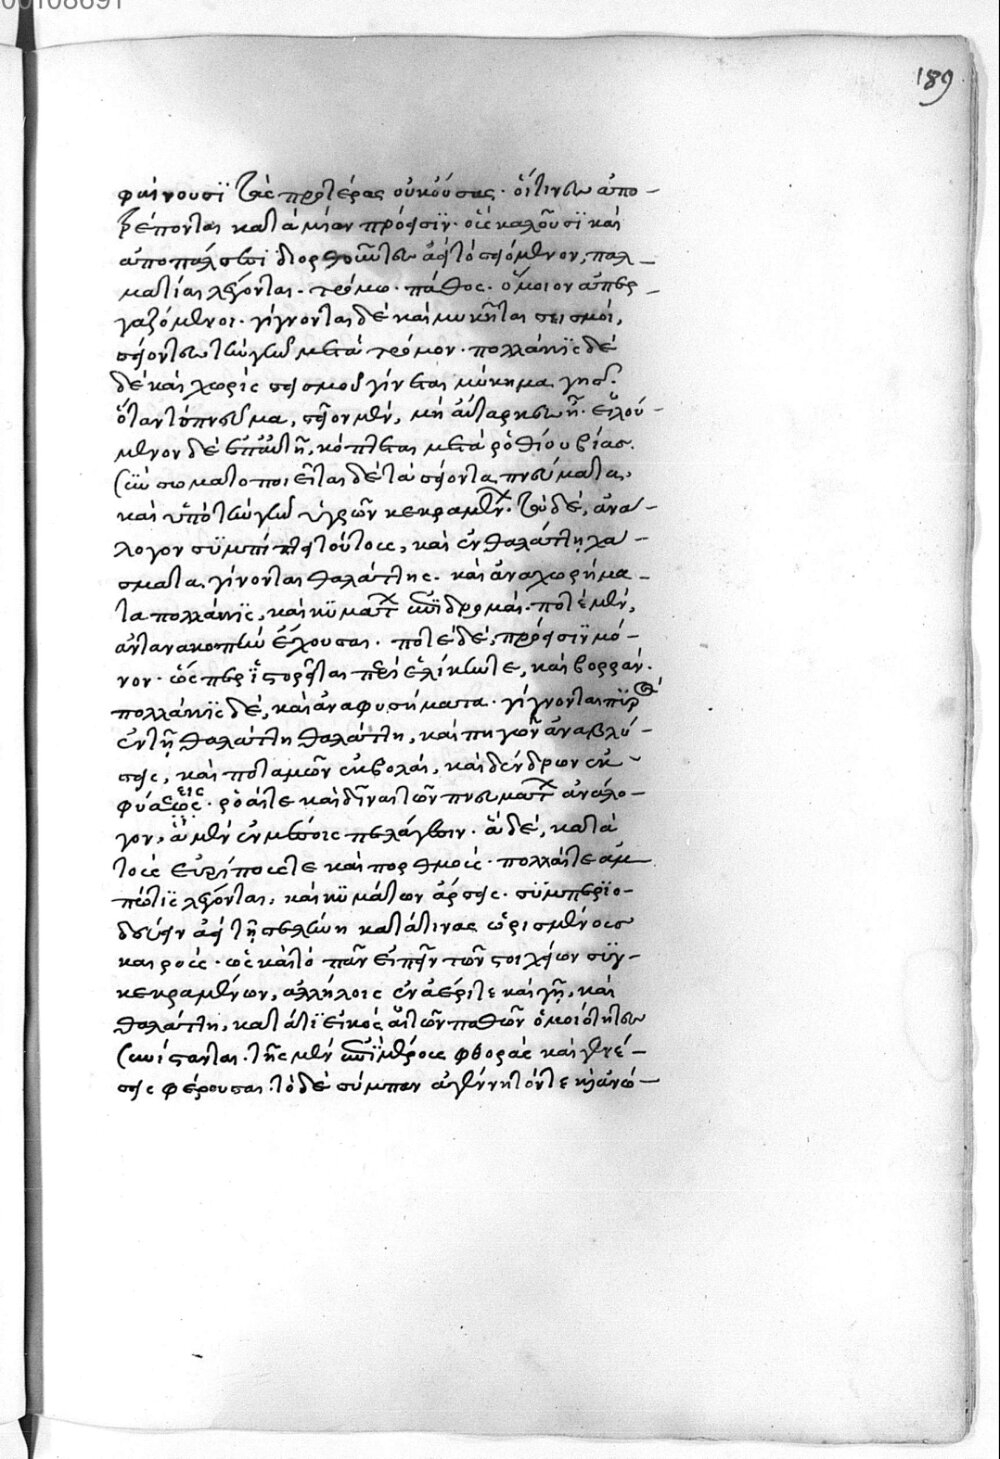 00108691
189
φαίνουσϊ τὰς προτέρας οὐκ οὔσας· οἵτινες ἀπο-
τρέπονται κατὰ μίαν πρόεσϊν· οὓς καλοῦσϊ καὶ
ἀποπάλσεϊ διορθοῦντες ἀεὶ τὸ σειόμενον, παλ-
ματίαι λέγονται. τρόμω· πάθος· ὅμοιον ἀπερ-
γαζόμενοι· γίγνονται δὲ καὶ μυκῆται σεισμοὶ,
σείοντες τὴν γῆν μετὰ τρόμον· πολλάκϊς δὲ
δὲ καὶ χωρὶς σεισμοῦ γίνεται μύκημα γῆς·
ὅταν τὸ πνεῦμα, σείειν μὲν, μὴ αὔταρκες ᾖ· εἰλού-
μενον δὲ ἐπ' αὐτῆ, κόπτεται μετὰ ῥοθίου βίας.
συσωματοποιεῖται δὲ τὰ σείοντα πνεύματα,
καὶ ὑπὸ τὴν γῆν ὑγρῶν κεκραμμένων. τὰ δὲ, ἀνα-
λογον συμπίπτει τούτοις, καὶ ἐν θαλάττη χά-
σματα γίνονται θαλάττης. καὶ ἀναχωρήμα-
τα πολλάκϊς, καὶ κυμάτων ἐπιδρομαὶ· ποτὲ μὲν,
ἀντανακοπὴν ἔχουσαι· ποτὲ δὲ, πρόεσιν μό-
νον· ὥσπερ ἱστορεῖται περὶ ἑλίκην τε, καὶ βορραν.
πολλάκϊς δὲ, καὶ ἀναφυσήματα· γίγνονται πϋρὸς
ἐν τῆ θαλάττη θαλάττη, καὶ πηγῶν ἀναβλύ-
σεις, καὶ ποταμῶν ἐκβολαὶ, καὶ δένδρων ἐκ-
φύσεις· ῥοαί τε καὶ δῖναι τῶν πνευμάτων ἀνάλο-
γον, αἱ μὲν ἐν μέσοις πελάγεσιν· αἱ δὲ, κατὰ
τοὺς εὐρίπους τε καὶ πορθμοὺς· πολλαί τε ἀμ-
πώτϊς λέγονται, καὶ κυμάτων ἄρσεις· συμπεριο-
δεύειν ἀεὶ τῆ σελήνη κατά τινας ὡρισμένους
καιροὺς· ὡς καὶ τὸ πᾶν εἰπεῖν τῶν στοιχείων συγ-
κεκραμένων, ἀλλήλοις ἐν ἀέρι τε καὶ γῆ, καὶ
θαλάττη, κατὰ τὸ εἰκὸς αἱ τῶν παθῶν ὁμοιότητες
συνίστανται. τῆς μὲν ἐπιμέρους φθορὰς καὶ γενέ-
σεις φέρουσαι· τὸ δὲ σύμπαν ἀγέννητόν τε καὶ ἀνώ-